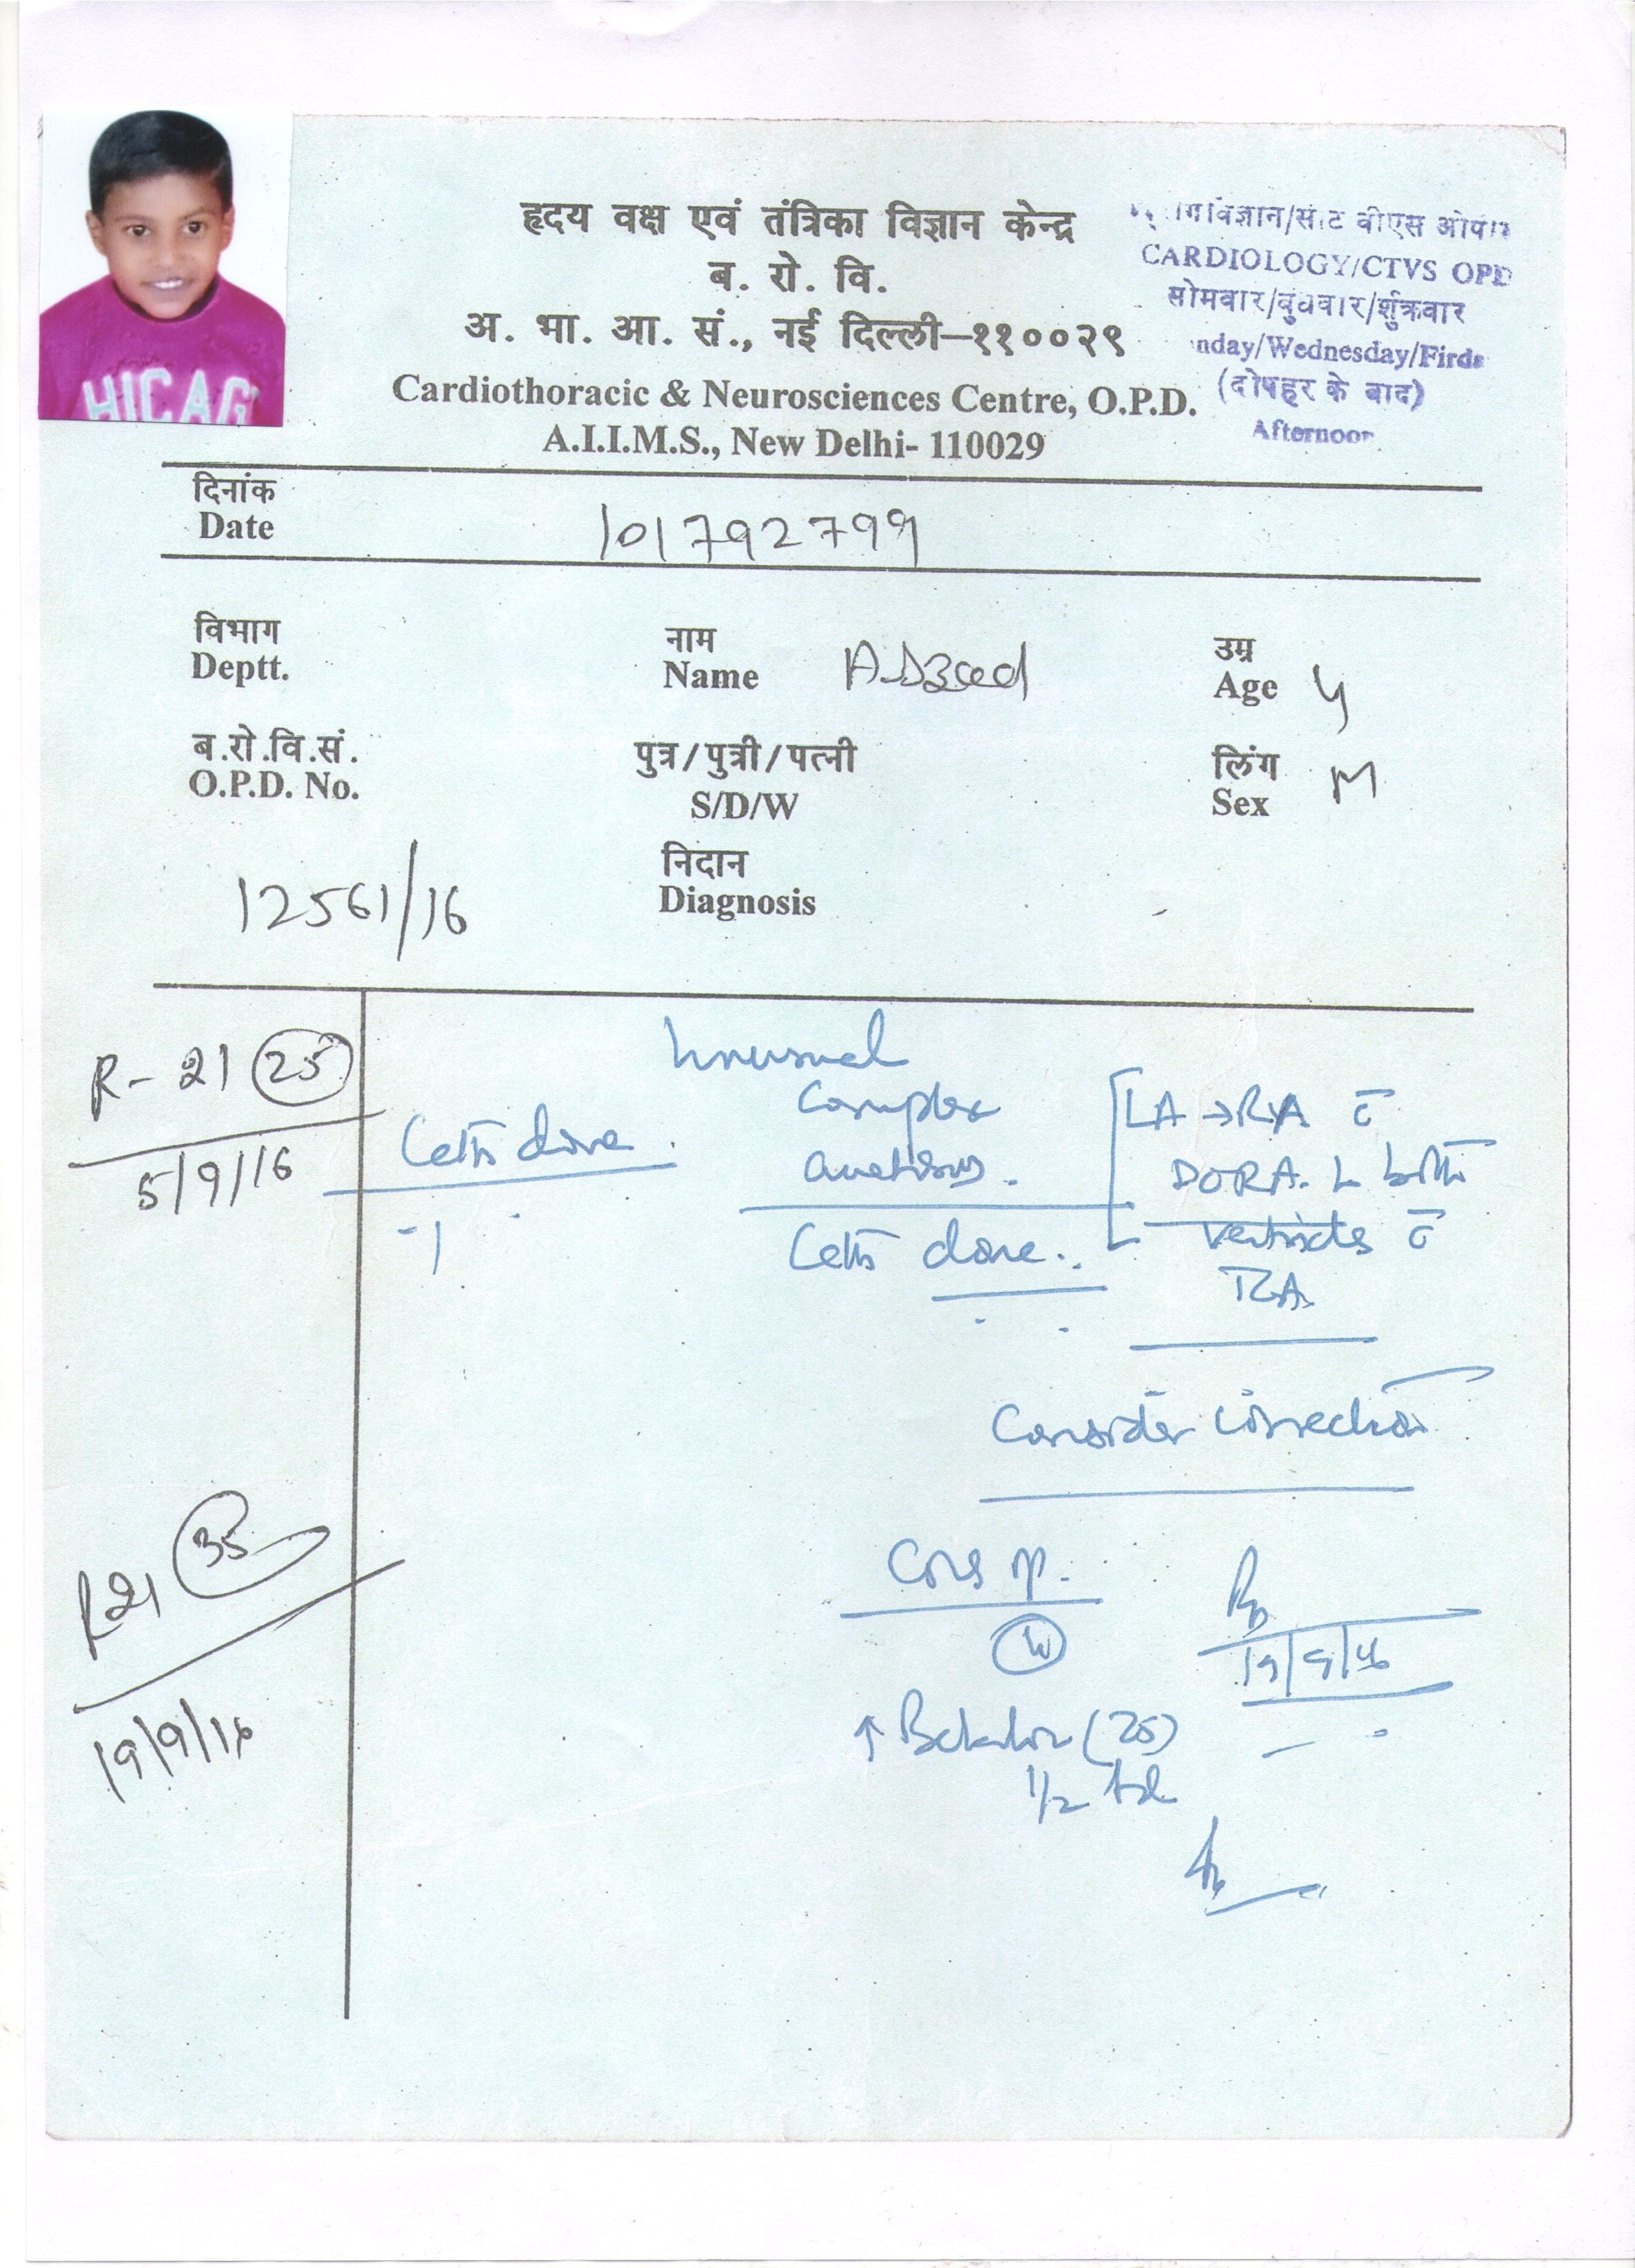 हृदय वक्ष एवं तंत्रिका विज्ञान केन्द्र
ब. रो. वि.
अ. भा. आ. सं., नई दिल्ली–११००२९
Cardiothoracic & Neurosciences Centre, O.P.D.
A.I.I.M.S., New Delhi- 110029
CARDIOLOGY/CTVS OPD
सोमवार/बुधवार/शुक्रवार
nday/Wednesday/Firda
(दोपहर के बाद)
Afternoon
HICAG
दिनांक
Date 101792799
विभाग
Deptt.
नाम
Name
उम्र
Age
ब.रो.वि.सं.
O.P.D. No.
12561/16
पुत्र/पुत्री/पत्नी
S/D/W
लिंग
Sex M
निदान
Diagnosis
R- 21 25
5/9/16
Unusual
Complex
done.
done.
LA → RA c̄
DORA. both
ventricles c̄
RA.
Consider correction
R21 35
19/9/16
19/9/16
↑ (25)
1/2